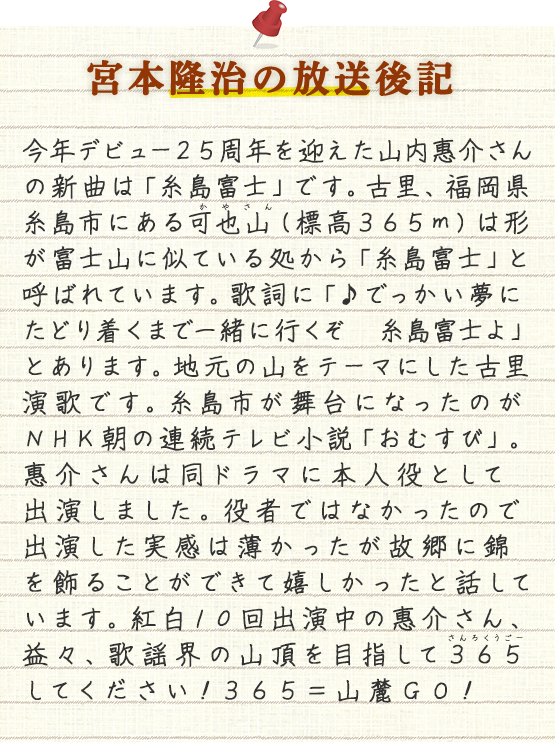 宮本隆治の放送後記
今年デビュー２５周年を迎えた山内惠介さん
の新曲は「糸島富士」です。古里、福岡県
かやさん
糸島市にある可也山（標高３６５ｍ）は形
が富士山に似ている処から「糸島富士」と
呼ばれています。歌詞に「♪でっかい夢に
たどり着くまで一緒に行くぞ　糸島富士よ」
とあります。地元の山をテーマにした古里
演歌です。糸島市が舞台になったのが
ＮＨＫ朝の連続テレビ小説「おむすび」。
惠介さんは同ドラマに本人役として
出演しました。役者ではなかったので
出演した実感は薄かったが故郷に錦
を飾ることができて嬉しかったと話して
います。紅白１０回出演中の惠介さん、
さんろくうごー
益々、歌謡界の山頂を目指して３６５
してください！３６５＝山麓ＧＯ！